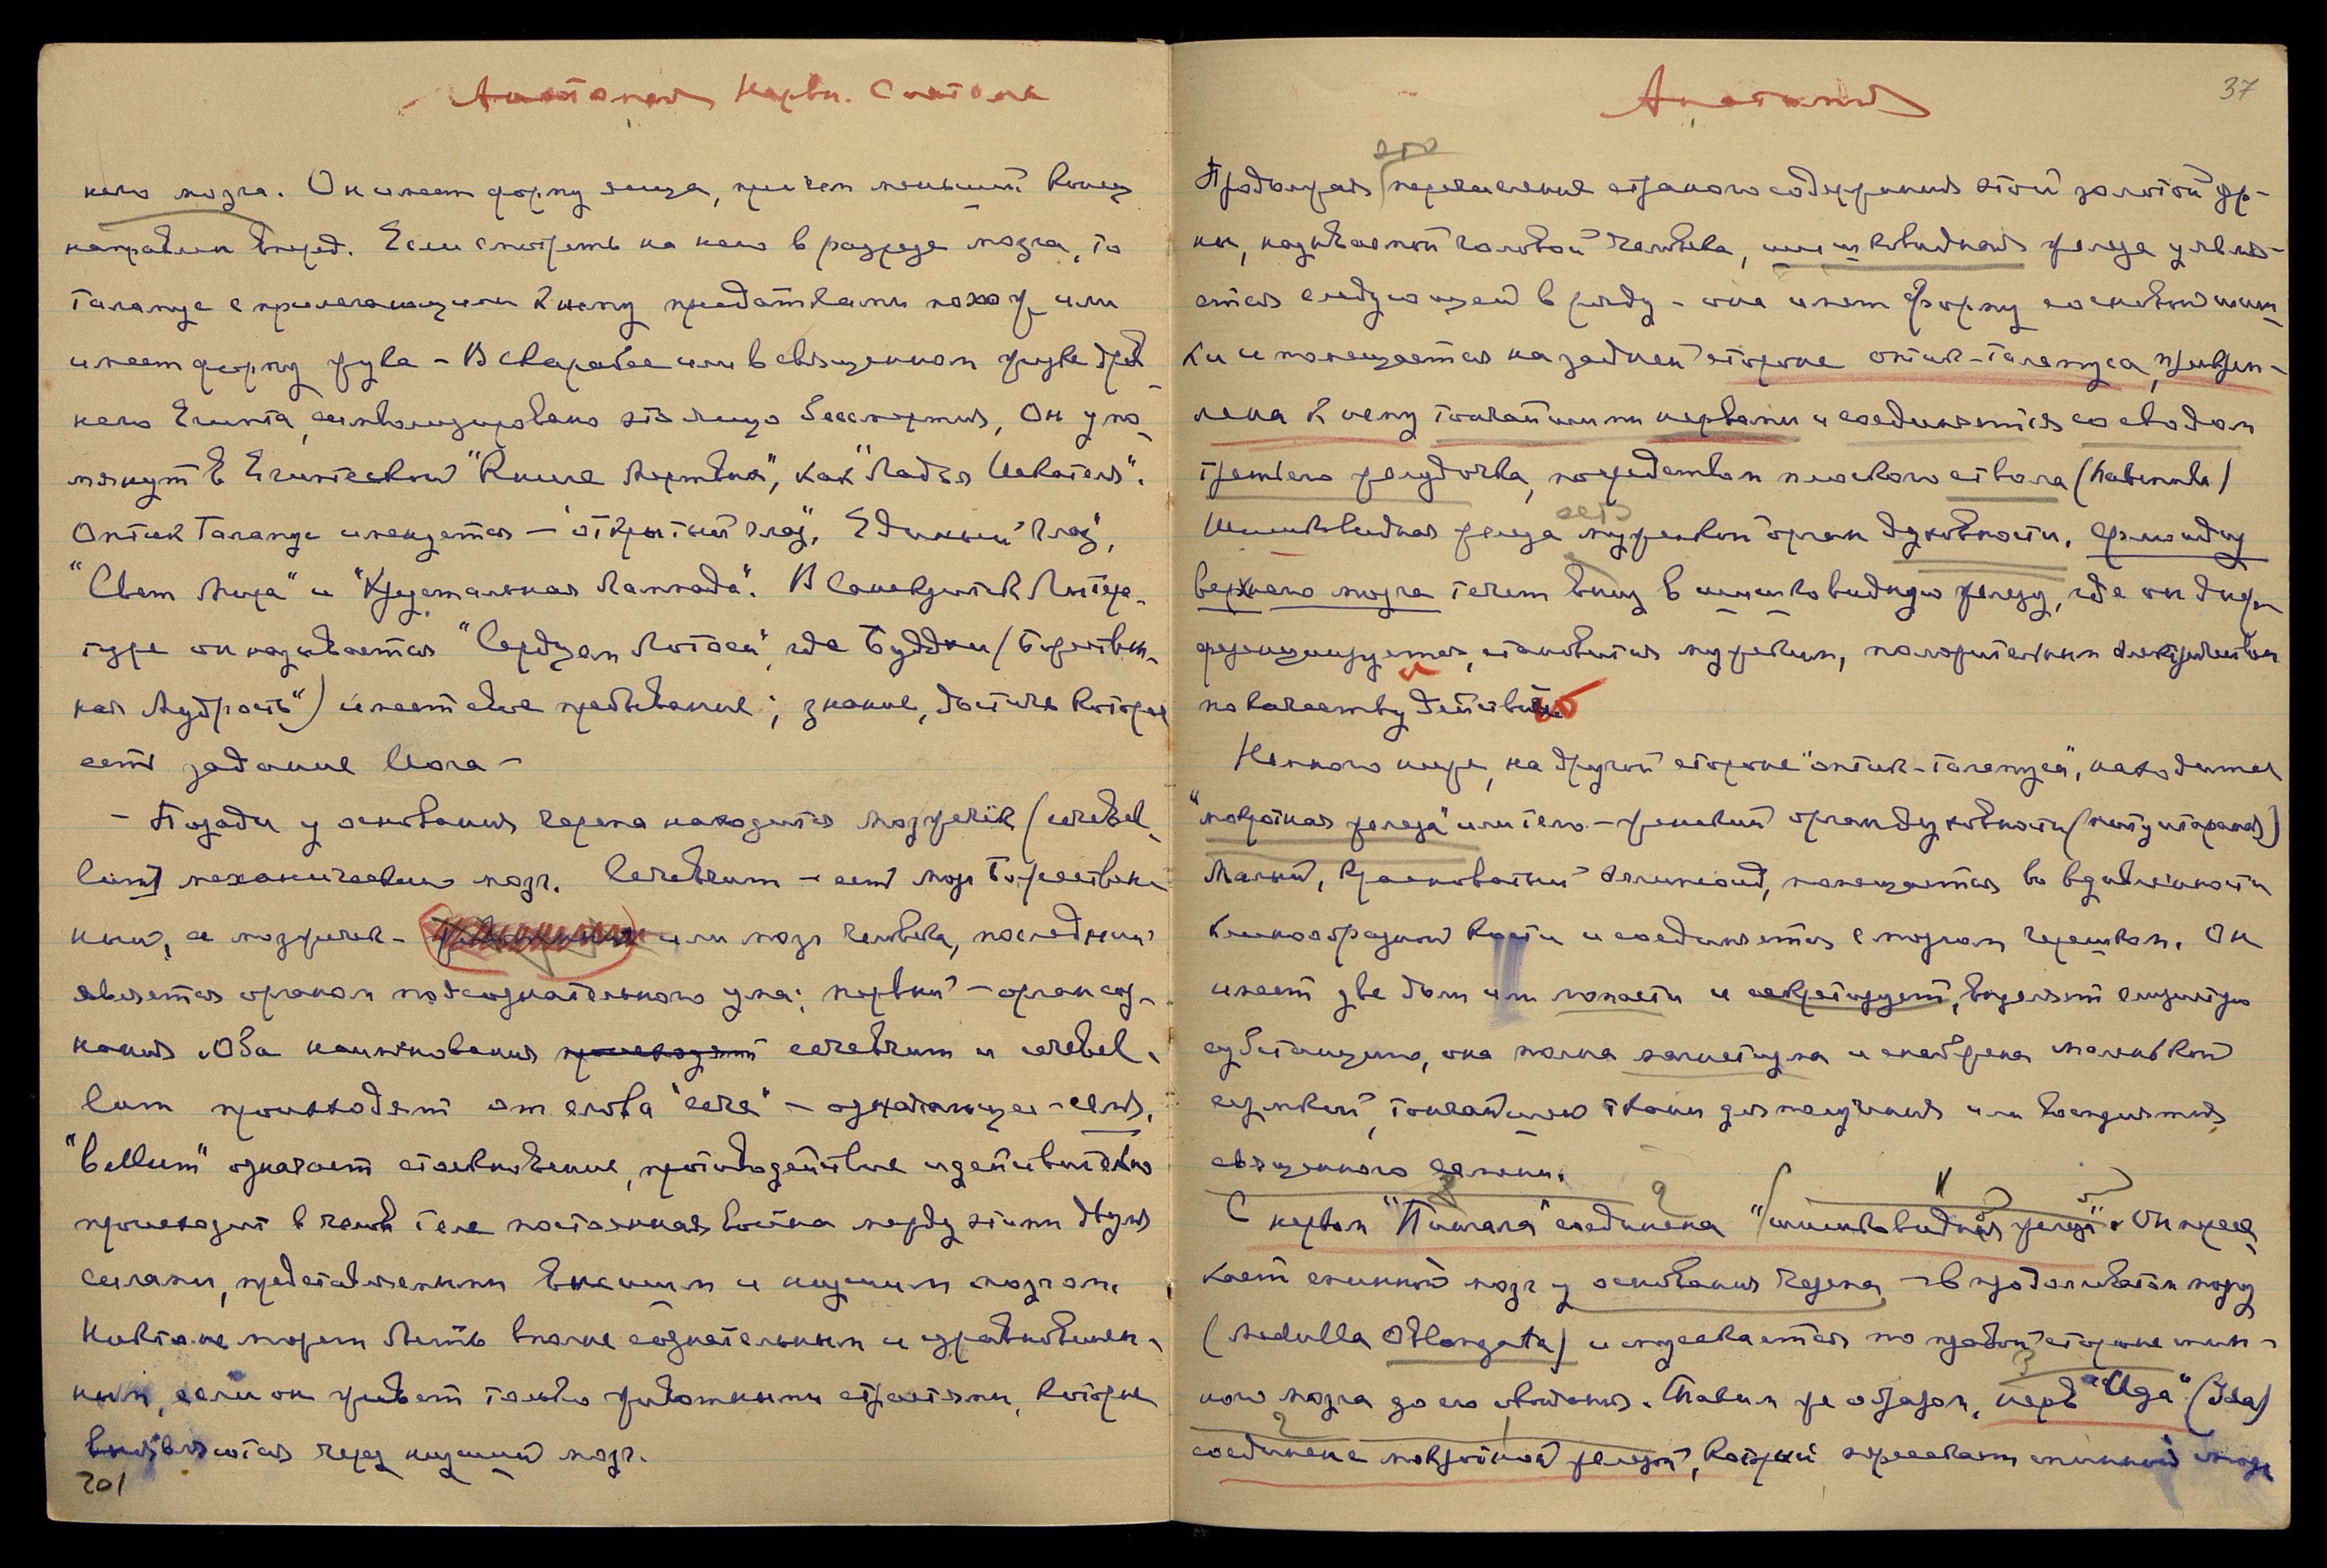 Анатомия Нервн. Система
него мозга. Он имеет форму яйца, причем меньший конец
направлен вперед. Если смотреть на него в разрезе мозга, то
таламус с прилегающими к нему придатками похож или
имеет форму жука – В скарабее или в священном жуке древ-
него Египта, символизировано это яйцо бессмертия, Он упо-
мянут в Египетской "Книге Мертвых", как "Ладья Искателя".
Оптик Таламус именуется – "открытый глаз", "Единый глаз",
"Свет Мира" и "Хрустальная Лампада". В Санскритск Литера-
туре он называется "Сердцем Лотоса", где Буддхи (Божествен-
ная Мудрость") имеет свое пребывание; знание, достичь которое
есть задание Йога –
– Позади у основания черепа находится мозжечек (cerebel-
lum) механический мозг. Cerebrum – есть мозг Божествен-
ный, а мозжечек – или мозг человека, последний
является органом подсознательного ума; первый – орган соз-
нания. Оба наименования происходят cerebrum и cerebel-
lum происходят от слова "cere" – означающее – семя.
"bellum" означает столкновение, противодействие и действительно
происходит в челов теле постоянная война между этими двумя
силами, представленными высшим и низшим мозгом.
Никто не может быть вполне сознательным и уравновешен-
ным, если он живет только животными страстями, которые
выявляются через низший мозг.
201
Анатомия
37
это
Продолжая перечисление странного содержания этой золотой ур-
ны, называемой головой человека, шишковидная железа являе-
ется следующей в ряду – она имеет форму сосновой шиш-
ки и помещается на задней стороне оптик-таламуса, прикреп-
лена к нему тончайшими нервами и соединяется со сводом
третьего желудочка, посредством плоского ствола
есть
Шишковидная железа мужской орган духовности. Флюиды
верхнего мозга течет вниз в шишковидную железу, где он диф-
ференцируется, становится мужским, положительным электричеством
по качеству и действию
Немного ниже, на другой стороне "оптик-таламуса", находится
"мокротная железа" или тело – женский орган духовности
Малый, красноватый эллипсоид, помещается во вдавленности
клинообразной кости и соединяется с мозгом черешком. Он
имеет две доли или лопасти и секретирует, выделяет слизистую
субстанцию, она полна магнетизма и снабжена маленькой
сумкой, тончайшею ткани для получения или восприятия
священного семени.
С нервом "Пингала" соединена "шишковидная железа". Он пересе-
кает спинной мозг у основания черепа – в продолговатом мозгу
(Medulla Oblongata) и спускается по правой стороне спин-
ного мозга до его окончания. Таким же образом, нерв "Ида" (Ida)
соединена мокротной железой, который пересекает спинной мозг